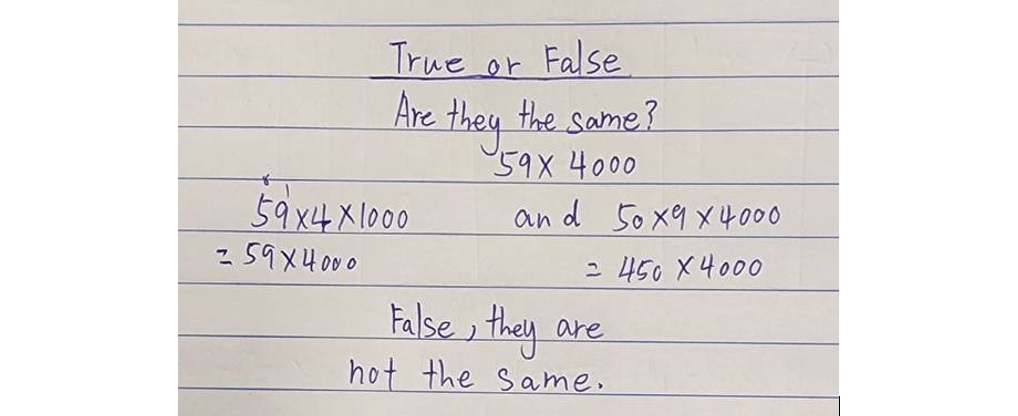 True or False
Are they the same?
59 x 4000
59 x 4 x 1000 and 50 x 9 x 4000
= 59 x 4000 = 450 x 4000
False, they are
not the same.